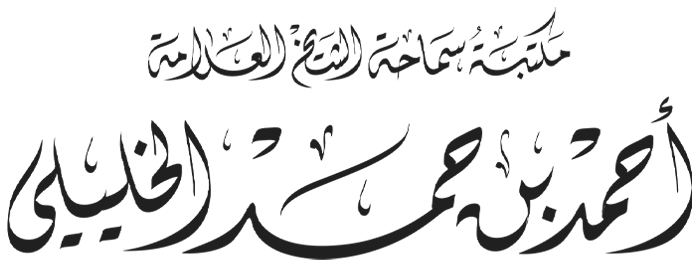 مكتبة سماحة الشيخ العلامة
أحمد بن حمد الخليلي